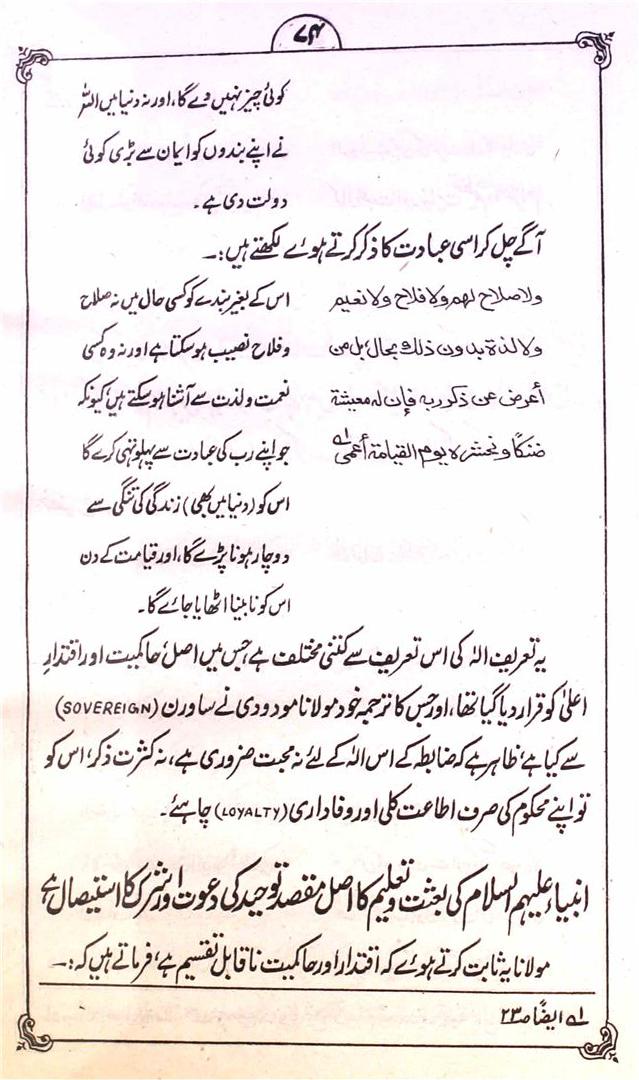 ۷۴
کوئی چیز نہیں دے گا، اور نہ دنیا میں اللہ
نے اپنے بندوں کو ایمان سے بڑی کوئی
دولت دی ہے۔
آگے چل کر اسی عبادت کا ذکر کرتے ہوئے لکھتے ہیں:۔
ولا صلاح لهم ولا فلاح ولا نعيم
ولا لذة بدون ذلك بحال بل من
أعرض عن ذكر ربه فإن له معيشة
ضنكًا ونحشره يوم القيامة أعمى ۱ه
اس کے بغیر بندے کو کسی حال میں نہ صلاح
و فلاح نصیب ہو سکتا ہے اور نہ وہ کسی
نعمت و لذت سے آشنا ہو سکتے ہیں، کیونکہ
جو اپنے رب کی عبادت سے پہلو تہی کرے گا
اس کو (دنیا میں بھی) زندگی کی تنگی سے
دوچار ہونا پڑے گا، اور قیامت کے دن
اس کو نابینا اٹھایا جائے گا۔
یہ تعریف الٰہ کی اس تعریف سے کتنی مختلف ہے جس میں اصل حاکمیت اور اقتدارِ
اعلیٰ کو قرار دیا گیا تھا، اور جس کا ترجمہ خود مولانا مودودی نے ساورن (SOVEREIGN)
سے کیا ہے، ظاہر ہے کہ ضابطہ کے اس الٰہ کے لئے نہ محبت ضروری ہے، نہ کثرت ذکر، اس کو
تو اپنے محکوم کی صرف اطاعت کلی اور وفاداری (LOYALTY) چاہئے۔
انبیاء علیہم السلام کی بعثت و تعلیم کا اصل مقصد توحید کی دعوت اور شرک کا استیصال ہے
مولانا یہ ثابت کرتے ہوئے کہ اقتدار اور حاکمیت ناقابل تقسیم ہے، فرماتے ہیں کہ:۔
۱ه ایضًا ص ۲۳